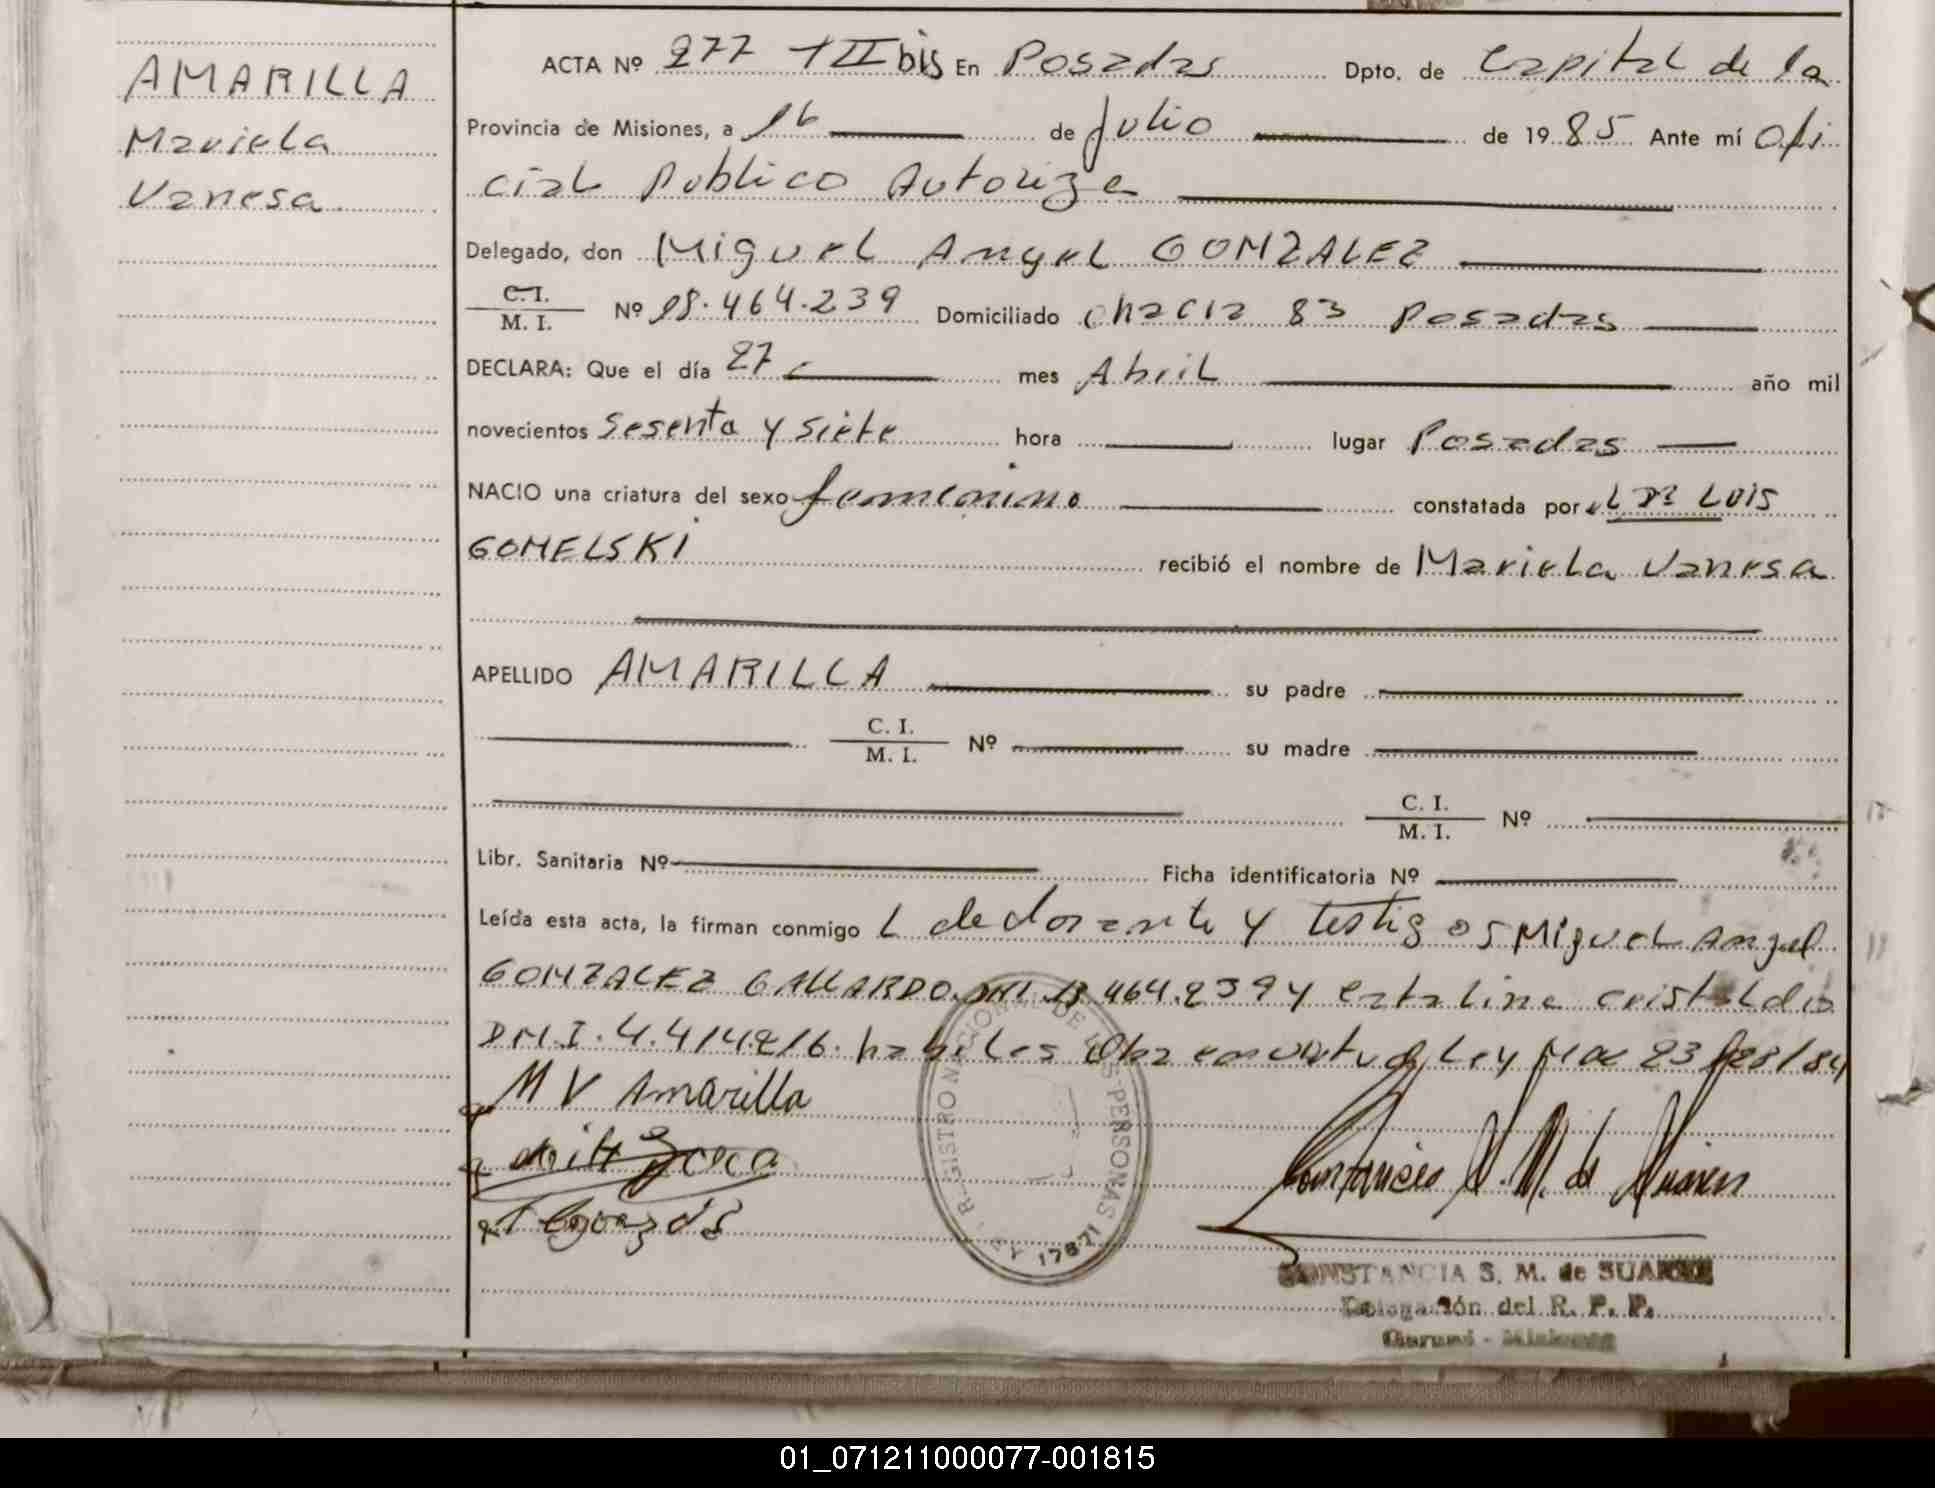 AMARILLA
Mariela
Vanesa
ACTA Nº 277 TII bis En Posadas Dpto. de Capital de la
Provincia de Misiones, a 16 de Julio de 1985 Ante mí Ofi
cial Publico Autoriza
Delegado, don Miguel Angel GONZALEZ
C. I.
M. I. Nº 18.464.239 Domiciliado chacra 83 Posadas
DECLARA: Que el día 27 mes Abril año mil
novecientos sesenta y siete hora lugar Posadas
NACIO una criatura del sexo femenino constatada por el Dr LUIS
GOMELSKI recibió el nombre de Mariela Vanesa
APELLIDO AMARILLA su padre
C. I.
M. I. Nº su madre
C. I.
M. I. Nº
Libr. Sanitaria Nº Ficha identificatoria Nº
Leída esta acta, la firman conmigo L declarante y testigos Miguel Angel
GONZALEZ GALLARDO DNI 18.464.239 y Catalina Cristaldo
D.M.I. 4.414.216. habiles Ley 23
M V Amarilla
REGISTRO NACIONAL DE LAS PERSONAS
LEY 17671
CONSTANCIA S. M. de SUAREZ
Delegación del R. P. P.
Garupá - Misiones
01_071211000077-001815